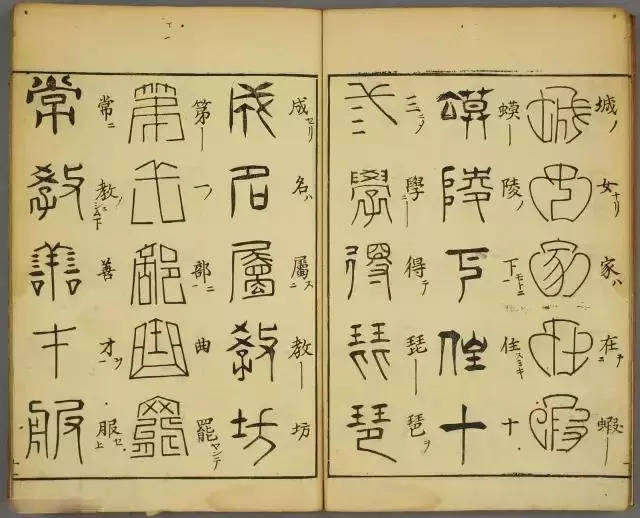 城ノ 女ナリ 家ハ 在テ二 蝦ー
城 女 家 在 蝦
蟆ー 陵ノ 下モトニ一 住スミキ 十
蟆 陵 下 住 十
三ニノ 學ニー 得テ 琵ー 琶ヲ
三 學 得 琵 琶
成セリ 名ハ 屬スニ 教ー 坊
成 名 屬 教 坊
第ー 一 部ニ 曲 罷ヤンテ
第 一 部 曲 罷
常ニ 教 善 才ヲ一 服セ上
常 教 善 才 服